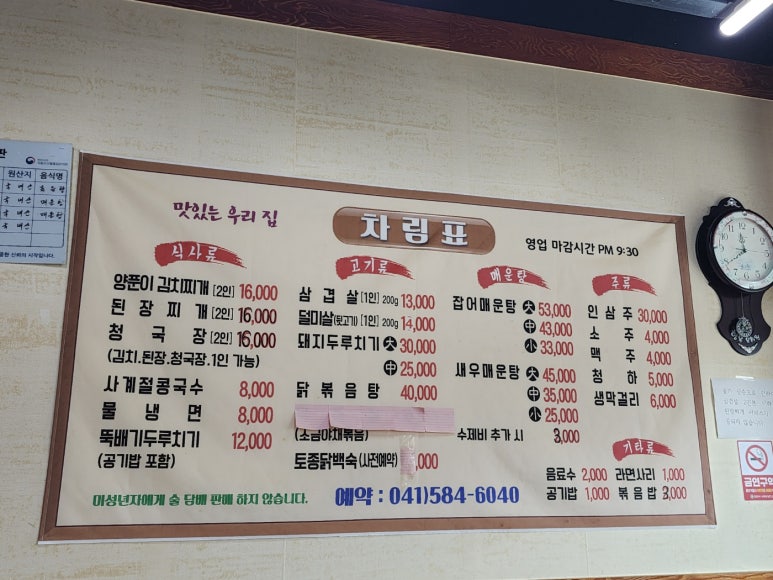 원산지 음식명
맛있는 우리 집
차림표
영업 마감시간 PM 9:30
식사류
양푼이 김치찌개 [2인] 16,000
된장찌개 [2인] 16,000
청국장 [2인] 16,000
(김치.된장.청국장.1인 가능)
사계절콩국수 8,000
물냉면 8,000
뚝배기두루치기 12,000
(공기밥 포함)
고기류
삼겹살 [1인] 200g 13,000
덜미살(뒷고기) [1인] 200g 14,000
돼지두루치기 大 30,000
中 25,000
닭볶음탕 40,000
토종닭백숙 (사전예약) ,000
매운탕
잡어매운탕 大 53,000
中 43,000
小 33,000
새우매운탕 大 45,000
中 35,000
小 25,000
수제비 추가 시 3,000
주류
인삼주 30,000
소주 4,000
맥주 4,000
청하 5,000
생막걸리 6,000
기타류
음료수 2,000 라면사리 1,000
공기밥 1,000 볶음밥 3,000
미성년자에게 술 담배 판매 하지 않습니다.
예약 : 041)584-6040
금연구역